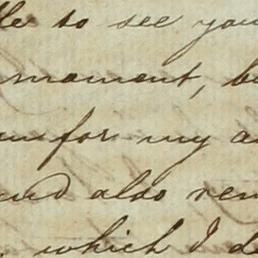 to see you
moment, b
for my a
and also rem
which I d